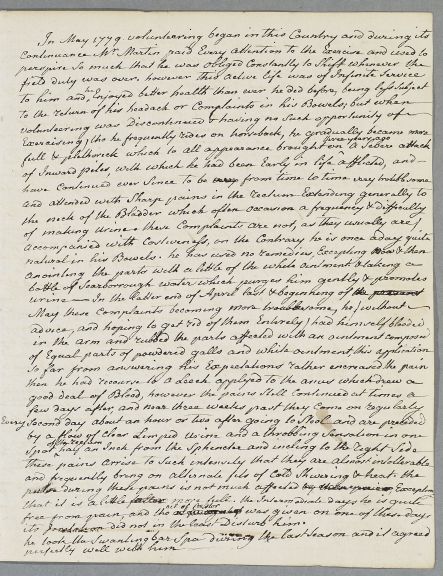 In May 1779 volunteering began in this Country and during its
Continuance Mr Martin paid Every attention to the Exercise and used to
perspire so much that he was obliged Constantly to Shift whenever the
field duty was over, however this active life was of Infinite Service
to him and he Enjoyed better health than ever he did before, being less Subject
to the return of his headach or Complaints in his Bowels; but when
volunteering was Discontinued & having no Such opportunity of
Exercising, tho he frequently rides on horseback, he gradually became more
full & plethorick which to all appearance brought on a Severe attack
of Inward Peles, with which he had been Early in life afflicted, and
have Continued ever Since to be from time to time very troublesome
and attended with Sharp pains in the rectum Extending generally to
the neck of the Bladder which often occasion a frequency & difficulty
of making urine. these Complaints are not, as they usually are
accompanied with Costiveness, on the Contrary he is once a day quite
natural in his Bowels. he has used no remedies, Excepting now & then
anointing the parts with a little of the white ointment & taking a
bottle of Scarborough water which purges him gently & promotes
urine — In the latter end of April last & beginning of the present
May these Complaints becoming more troublesome, he, without
advice, and hoping to get rid of them Entirely, had himself blooded
in the arm and rubbed the parts affected with an ointment composed
of Equal parts of powdered galls and white ointment, this application
So far from answering his Expectations rather encreased the pain
then he had recourse to a Leech applyed to the anus which drew a
good deal of Blood, however the pains Still Continued at times a
few days after, and near three weeks past they Came on regularly
Every Second day about an hour or two after going to Stool and are preceded
by a flow of Clear Limped urine and a throbbing Sensation in one
Spot half an Inch from the Sphincter and inclining to the right Side
These pains arrise to Such intensity that they are almost intolerable
and frequently bring on alternate fits of Cold Shivering & heat. the
pulse during these pains is not much affected Excepting
that it is a little more full. the Intermediate days he is quite
free from pain, and the was given on one of these days
its did not in the least Disturb him.
he took the Swanlingbar Spa during the last Season and it agreed
perfectly well with him —